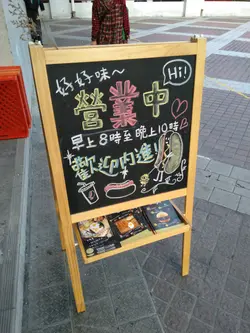 好好味~
Hi!
營業中
早上8時至晚上10時
歡迎內進!